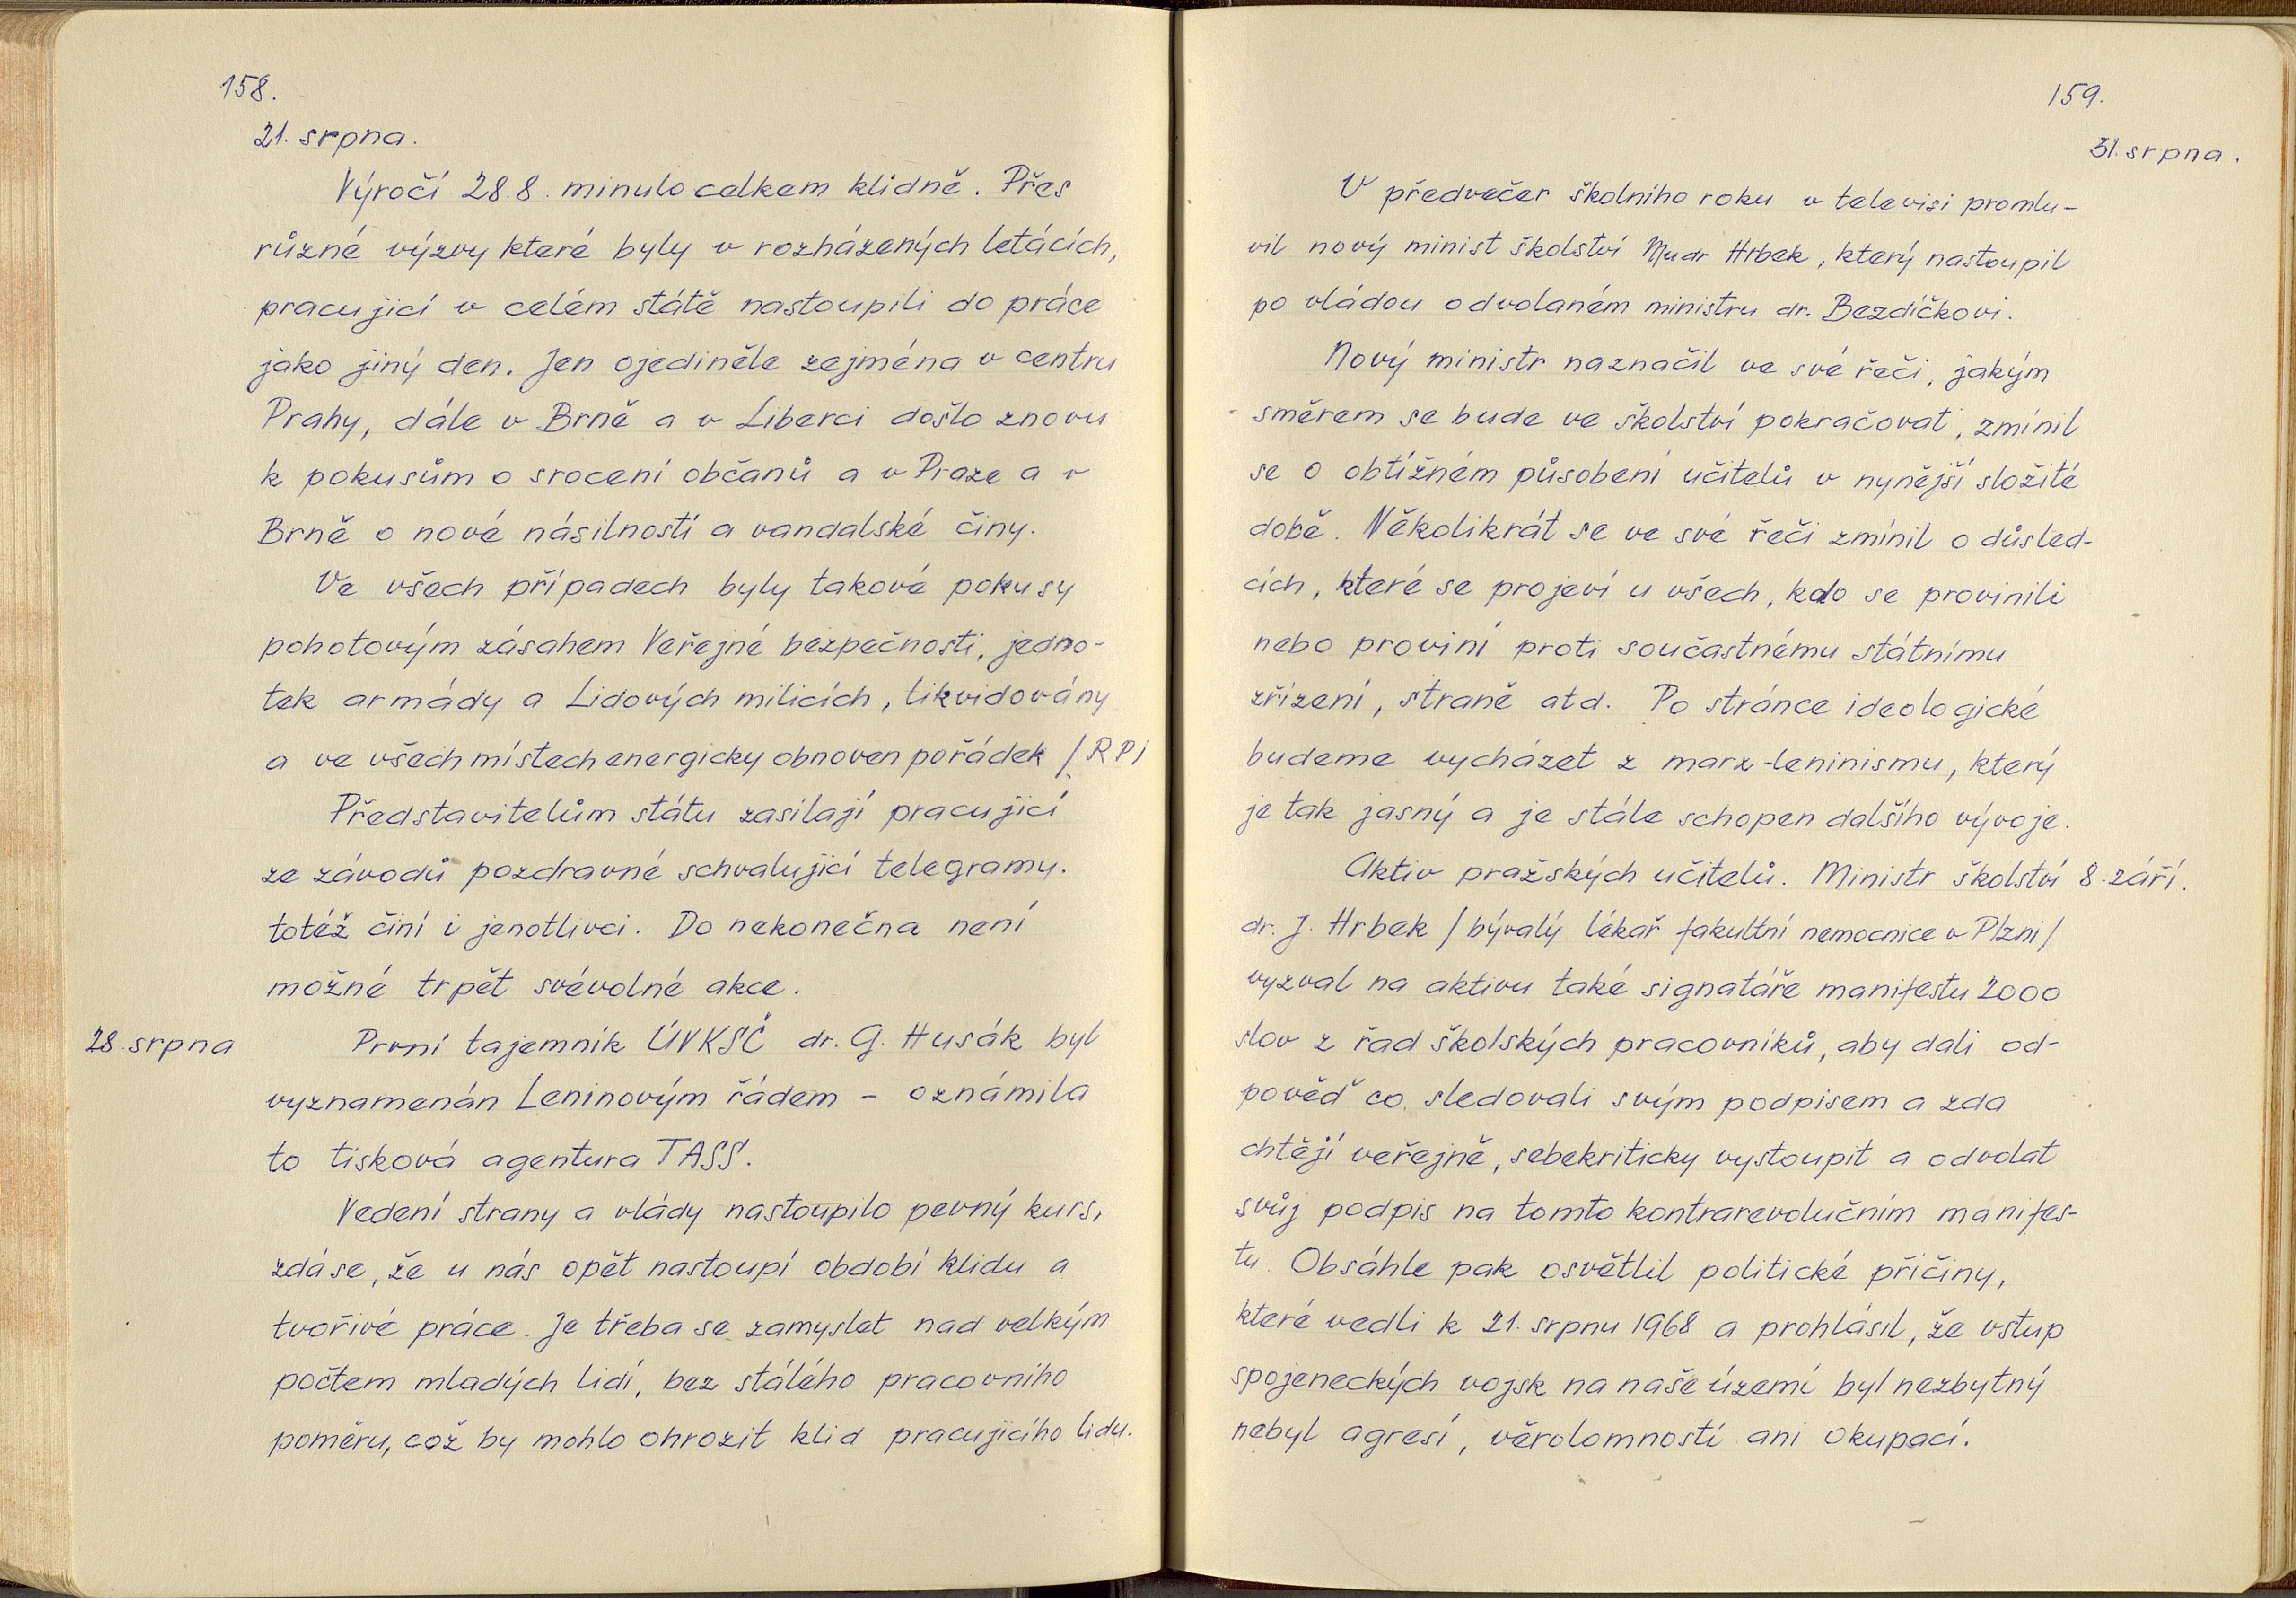 158.
21. srpna.
Výročí 28.8. minulo celkem klidně. Přes
různé výzvy které byly v rozházených letácích,
pracující v celém státě nastoupili do práce
jako jiný den. Jen ojediněle zejména v centru
Prahy, dále v Brně a v Liberci došlo znovu
k pokusům o srocení občanů a v Praze a v
Brně o nové násilnosti a vandalské činy.
Ve všech případech byly takové pokusy
pohotovým zásahem Veřejné bezpečnosti, jedno-
tek armády a Lidových milicích, likvidovány
a ve všech místech energicky obnoven pořádek /RP/
Představitelům státu zasílají pracující
ze závodů pozdravné schvalující telegramy.
totéž činí i jenotlivci. Do nekonečna není
možné trpět svévolné akce.
28. srpna První tajemník ÚVKSČ dr. G. Husák byl
vyznamenán Leninovým řádem - oznámila
to tisková agentura TASS.
Vedení strany a vlády nastoupilo pevný kurs,
zdá se, že u nás opět nastoupí období klidu a
tvořivé práce. Je třeba se zamyslet nad velkým
počtem mladých lidí, bez stálého pracovního
poměru, což by mohlo ohrozit klid pracujícího lidu.
159.
31. srpna.
V předvečer školního roku v televisi promlu-
vil nový minist školství Mudr Hrbek, který nastoupil
po vládou odvolaném ministru dr. Bezdíčkovi.
Nový ministr naznačil ve své řeči, jakým
směrem se bude ve školství pokračovati, zmínil
se o obtížném působení učitelů v nynější složité
době. Několikrát se ve své řeči zmínil o důsled-
cích, které se projeví u všech, kdo se provinili
nebo proviní proti součastnému státnímu
zřízení, straně atd. Po stránce ideologické
budeme vycházet z marx-leninismu, který
je tak jasný a je stále schopen dalšího vývoje.
Aktiv pražských učitelů. Ministr školství 8. září.
dr. J. Hrbek /bývalý lékař fakultní nemocnice v Plzni/
vyzval na aktivu také signatáře manifestu 2000
slov z řad školských pracovníků, aby dali od-
pověď co sledovali svým podpisem a zda
chtějí veřejně, sebekriticky vystoupit a odvolat
svůj podpis na tomto kontrarevolučním manifes-
tu. Obsáhle pak osvětlil politické příčiny,
které vedli k 21. srpnu 1968 a prohlásil, že vstup
spojeneckých vojsk na naše území byl nezbytný
nebyl agresí, věrolomností ani okupací.